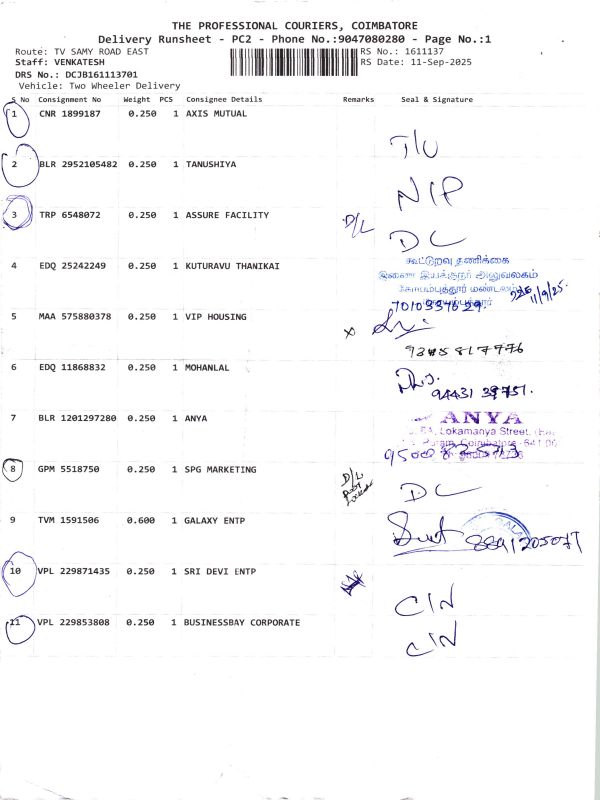 THE PROFESSIONAL COURIERS, COIMBATORE
Delivery Runsheet - PC2 - Phone No.:9047080280 - Page No.:1
Route: TV SAMY ROAD EAST
RS No.: 1611137
Staff: VENKATESH
RS Date: 11-Sep-2025
DRS No.: DCJB161113701
Vehicle: Two Wheeler Delivery
S No Consignment No Weight PCS Consignee Details Remarks Seal & Signature
1 CNR 1899187 0.250 1 AXIS MUTUAL
T/U
2 BLR 2952105482 0.250 1 TANUSHIYA
N/P
3 TRP 6548072 0.250 1 ASSURE FACILITY D/L
DC
4 EDQ 25242249 0.250 1 KUTURAVU THANIKAI
கூட்டுறவு தணிக்கை
இணை இயக்குநர் அலுவலகம்
கோயம்புத்தூர் மண்டலம்
11/9/25.
5 MAA 575880378 0.250 1 VIP HOUSING x
9345817776
6 EDQ 11868832 0.250 1 MOHANLAL
7 BLR 1201297280 0.250 1 ANYA
ANYA
Lokamanya Street,
8 GPM 5518750 0.250 1 SPG MARKETING D/L
DC
9 TVM 1591506 0.600 1 GALAXY ENTP
8891205077
10 VPL 229871435 0.250 1 SRI DEVI ENTP
C/N
11 VPL 229853808 0.250 1 BUSINESSBAY CORPORATE
C/N